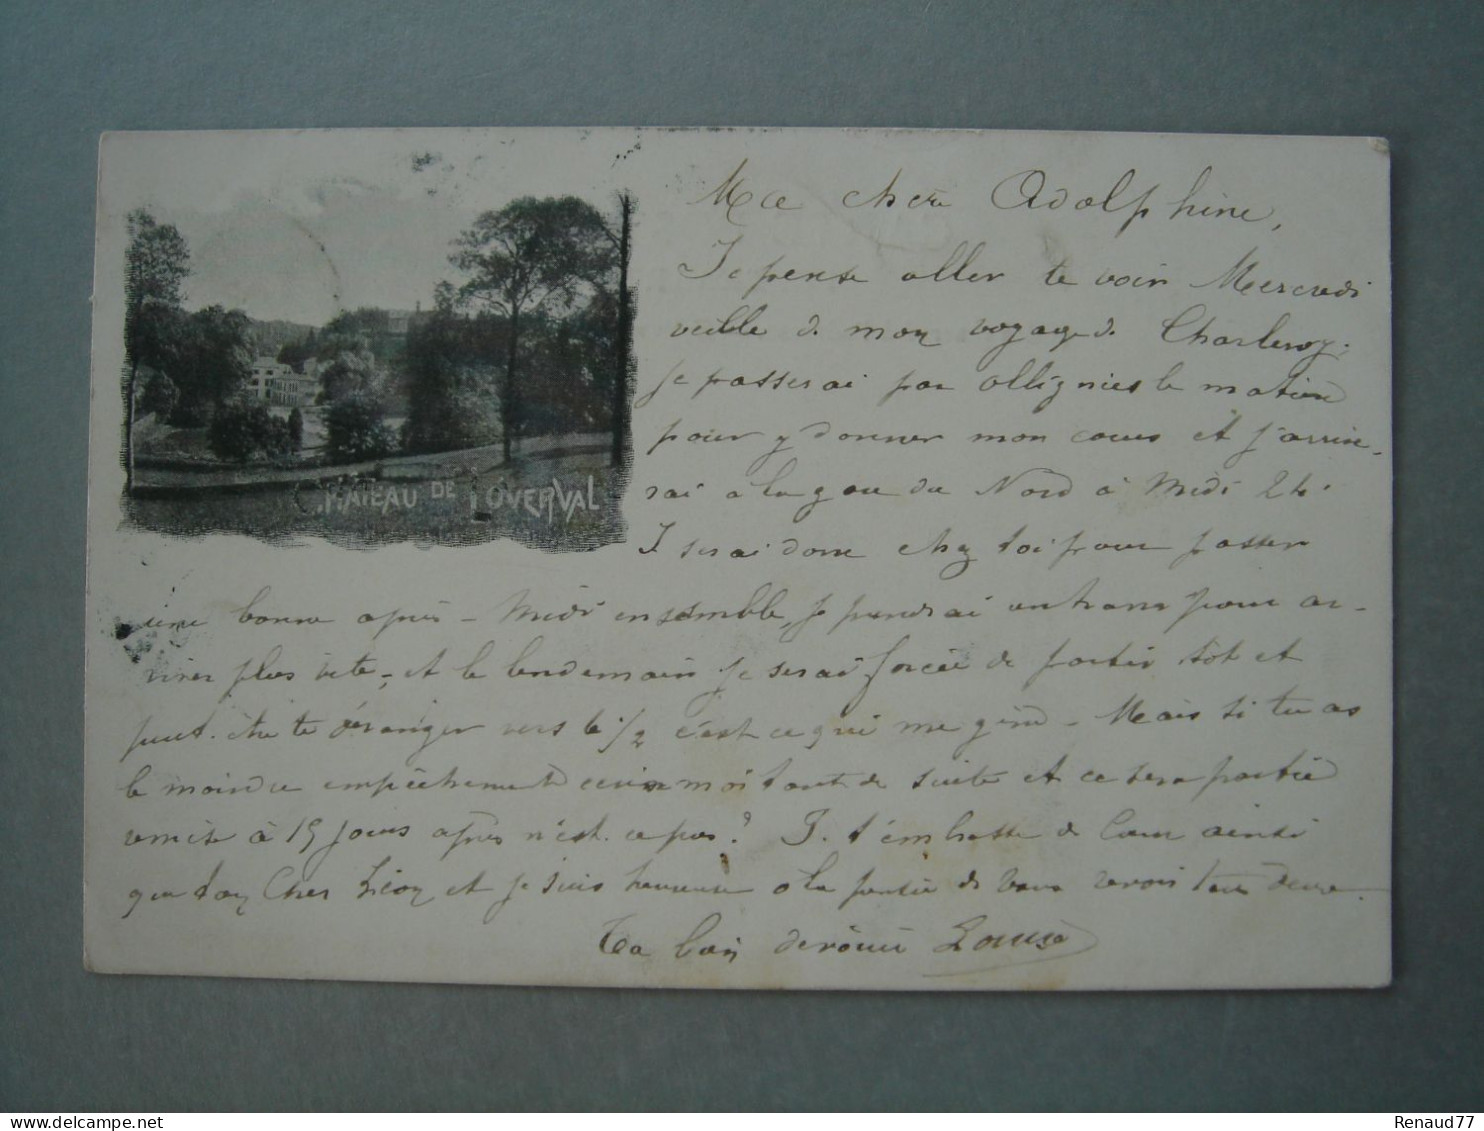 CHATEAU DE LOUVERVAL
Ma chère Adolphine,
Je pense aller te voir Mercredi
veille de mon voyage d. Charleroy;
je passerai par Ollignies le matin
pour y donner mon cours et j'arrive-
rai à la gare du Nord à Midi 24.
J serai donc chez toi pour passer
une bonne après-Midi ensemble, je prendrai un tram pour ar-
river plus vite, et le lendemain je serai forcée de partir tôt et
peut-être te déranger vers 6 1/2 c'est ce qui me gêne - Mais si tu as
le moindre empêchement écris moi tout de suite et ce sera partie
remise à 15 jours après n'est-ce pas? J. t'embrasse de Cœur ainsi
que ton Cher Léon et je suis heureuse à la pensée de vous revoir tous deux.
Ta bien dévouée Louise
Renaud77